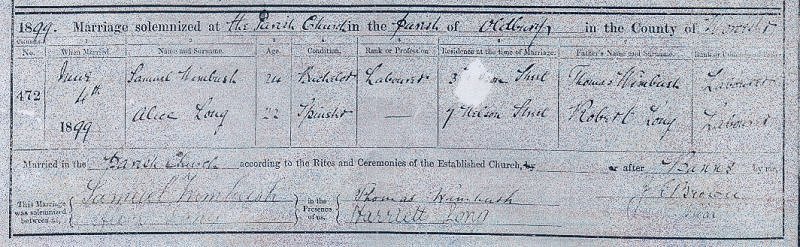 1899. Marriage solemnized at the Parish Church in the Parish of Oldbury in the County of Worcester
No. When Married. Name and Surname. Age. Condition. Rank or Profession Residence at the time of Marriage. Father's Name and Surname. Rank or
472 June 4th 1899 Samuel Wimbush 24 Bachelor Labourer 3 Street Thomas Wimbush Labourer
Alice Long 22 Spinster — 9 Nelson Street Robert Long Labourer
Married in the Parish Church according to the Rites and Ceremonies of the Established Church, by or after Banns by me,
This Marriage was solemnized between us, Samuel Wimbush in the Presence of us, Thomas Wimbush J Brown
Harriett Long Vicar